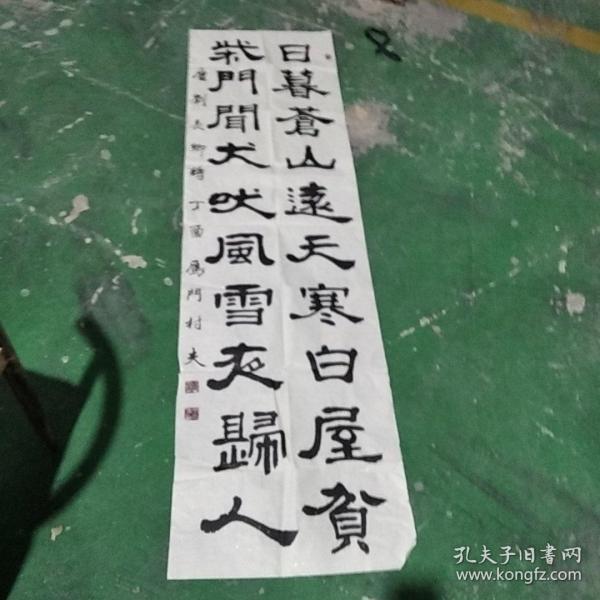 日暮蒼山遠天寒白屋貧
柴門聞犬吠風雪夜歸人
唐劉長卿詩丁酉雁門村夫
孔夫子旧書网
www.kongfz.com